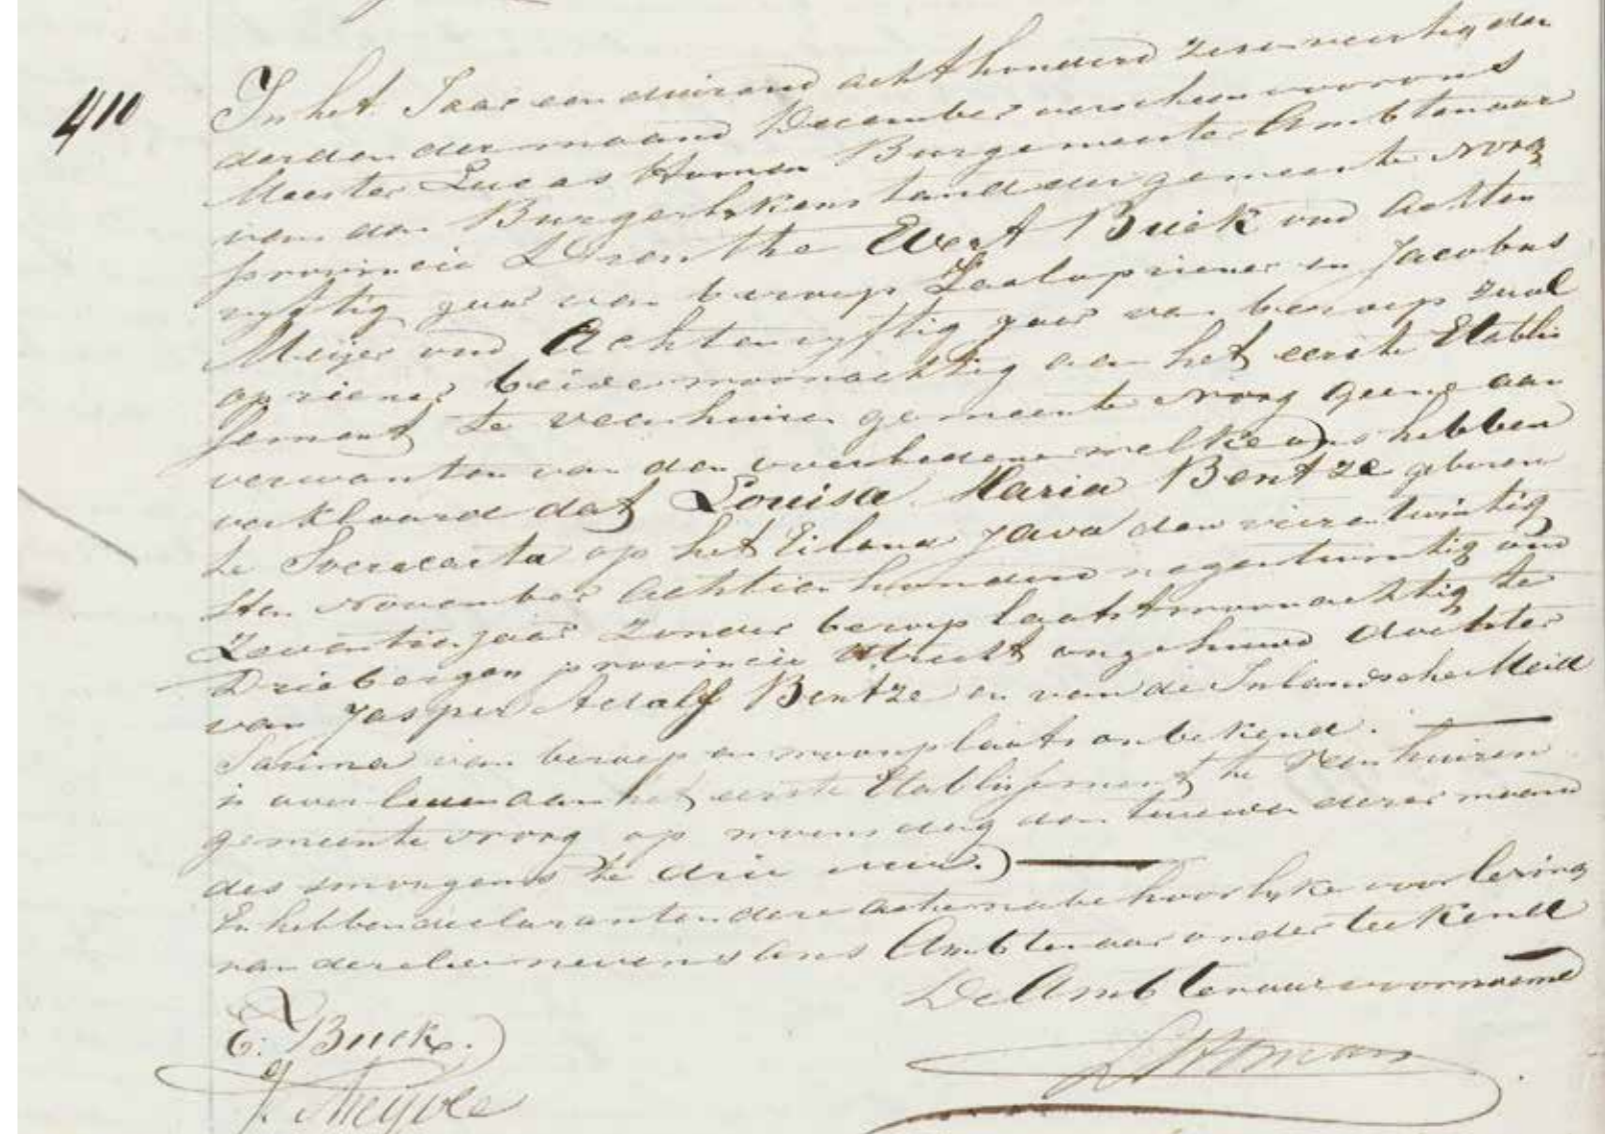 410
In het Jaar een duizend acht honderd zesenveertig den
derden der maand December verscheen voor ons
Meester Lucas Homan Burgemeester Ambtenaar
van den Burgerlyken stand der gemeente Norg
provincie Drenthe Evert Buck oud achten
vyftig jaar van beroep Zaalopziener en Jacobus
Meijer oud Achtenvyftig jaar van beroep zaal
opziener beide woonachtig aan het eerste Etablis
sement te veenhuizen gemeente Norg geene aan
verwanten van den overledene welke ons hebben
verklaard dat Louisa Maria Bentze geboren
te Soeracarta op het Eiland Java den vierentwintig
sten November Achttien honderd negentwintig oud
Zeventien jaar zonder beroep laatst woonachtig te
Driebergen provincie Utrecht ongehuwd dochter
van Jasper Adalf Bentze en van de Inlandsche Meid
Sarina van beroep en woonplaats onbekend.
is overleden aan het eerste Etablissement te Veenhuizen
gemeente Norg op woensdag den tweeden dezer maand
des smorgens te drie uur.)
En hebben declaranten deze acte na behoorlyke voorlezing
van dezelve nevens ons Ambtenaar onderteekend
De Ambtenaar voornoemd
E. Buck.
LHoman
J. Meijer